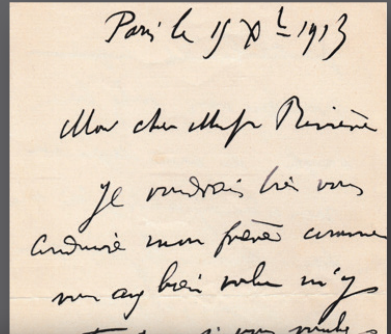 Paris le 15 Xbre 1913
Mon cher Rivière
Je voudrais bien vous
conduire mon frère comme
vous avez bien voulu m'y
si vous voulez